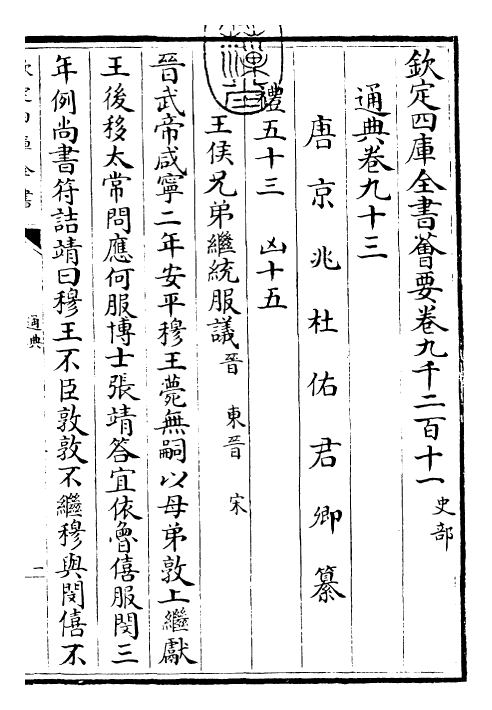 欽定四庫全書薈要卷九千二百十一 史部
通典卷九十三
唐京兆杜佑君卿纂
禮五十三 凶十五
王侯兄弟繼統服議 晉 東晉 宋
晉武帝咸寧二年安平穆王薨無嗣以母弟敦上繼獻
王後移太常問應何服博士張靖答宜依魯僖服閔三
年例尚書符詰靖曰穆王不臣敦敦不繼穆與閔僖不
欽定四庫全書
通典